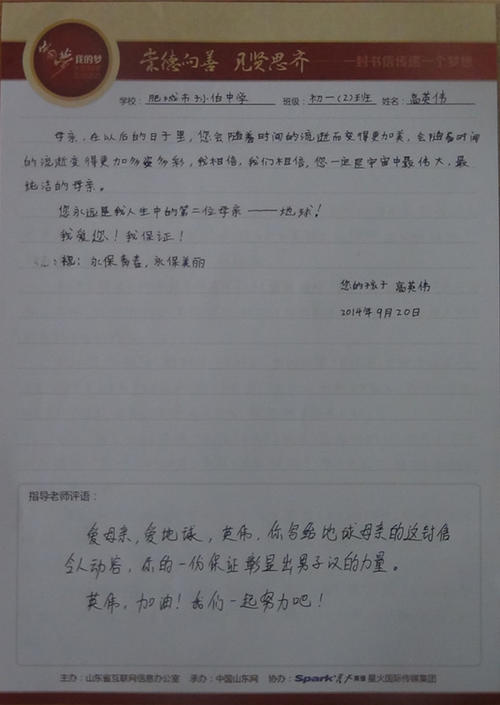 中国梦 我的梦
崇德向善 见贤思齐
一封书信传递一个梦想
学校：肥城市孙伯中学 班级：初一(2)班 姓名：高英伟
母亲，在以后的日子里，您会随着时间的流逝而变得更加美，会随着时间
的流逝变得更加多姿多彩，我相信，我们相信，您一定是宇宙中最伟大，最
纯洁的母亲。
您永远是我人生中的第二位母亲——地球！
我爱您！我保证！
祝：永保青春，永保美丽
您的孩子 高英伟
2014年9月20日
指导老师评语：
爱母亲，爱地球，英伟，你写给地球母亲的这封信
令人动容，你的一份保证彰显出男子汉的力量。
英伟，加油！我们一起努力吧！
主办：山东省互联网信息办公室 承办：中国山东网 协办：Spark星火英语 星火国际传媒集团